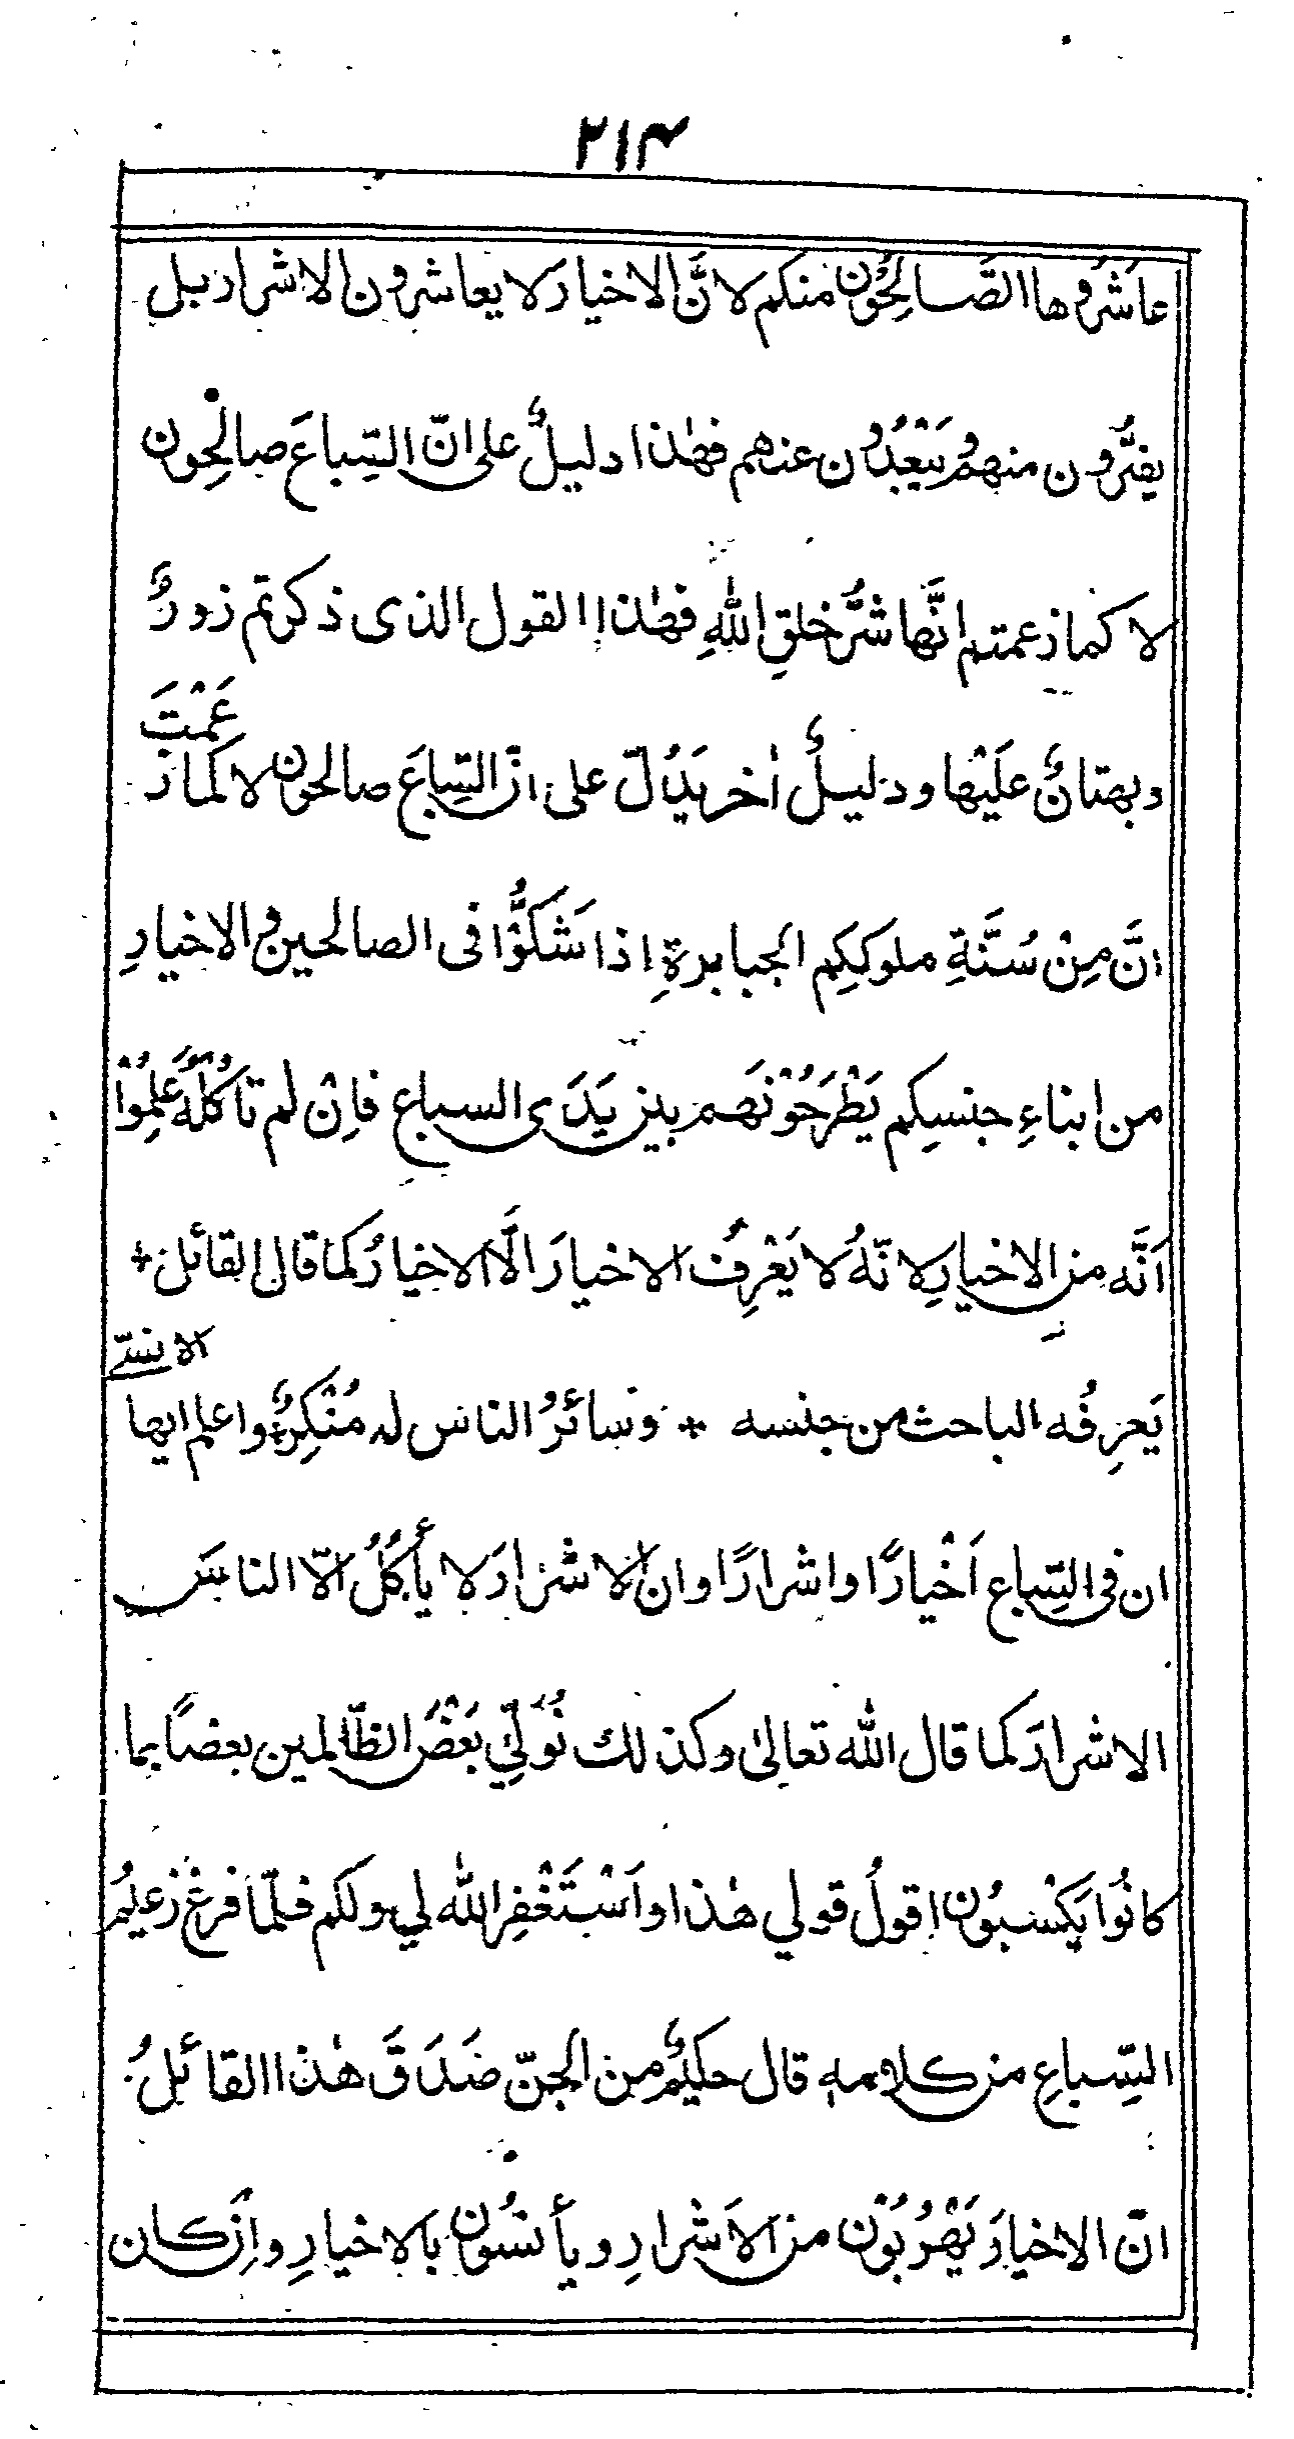 ۲۱۴
عاشَرُوها الصَّالِحُون منكم لانَّ الاخيار لا يعاشرون الاشرار بل
يفِرُّون منهم ويَبْعُدُون عنهم فهٰذا دليلٌ على انّ السِّباعَ صالِحون
لا كما زعمتم انَّها شَرُّ خلقِ اللهِ فهٰذا القول الذى ذكرتم زورٌ
وبهتانٌ عليْها ودليلٌ اٰخر يَدُلّ على انّ السِّباعَ صالحون لا كما زعَمْتَ
انَّ مِنْ سُنَّةِ ملوكِكم الجبابرةِ اذا شَكُّوْا فى الصالحين والاخيارِ
من ابناءِ جنسِكم يَطْرَحُوْنَهم بين يَدَى السباع فاِنْ لم تاكُلْهُ عَلِمُوْا
اَنَّه من الاخيارِ لانّهُ لا يَعْرِفُ الاخيارَ الَّا الاخيارُ كما قال القائل +
يَعرِفُه الباحث من جنسه + وسائرُ الناس له مُنْكِرٌ واعلم ايها الانسىّ
ان فى السِّباع اَخْيارًا واشرارًا وان الاشرارَ لا يأكُلُ الّا الناسَ
الاشرارَ كما قال الله تعالىٰ وكذلك نُوَلِّيْ بَعْضَ الظّالمين بعضًا بما
كانُوا يَكْسِبُون اقولُ قولي هٰذا واَسْتَغْفِر اللهَ لي ولكم فلمّا فرغ زعيمُ
السِّباعِ من كلامه قال حكيمٌ من الجنّ صَدَقَ هٰذا القائلُ
انّ الاخيارَ يَهْرُبُوْن من الاَشْرارِ ويأنسُون بالاخيارِ واِن كان